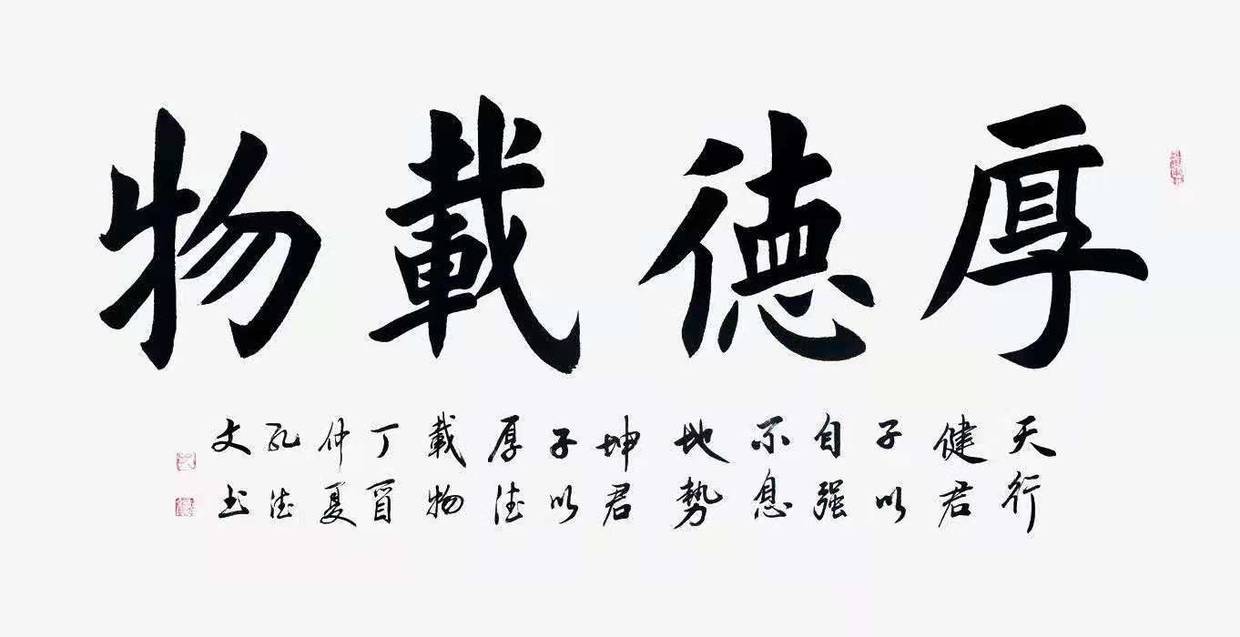 厚德載物
天行
健君
子以
自强
不息
地勢
坤君
子以
厚德
載物
丁酉
仲夏
孔德
文书